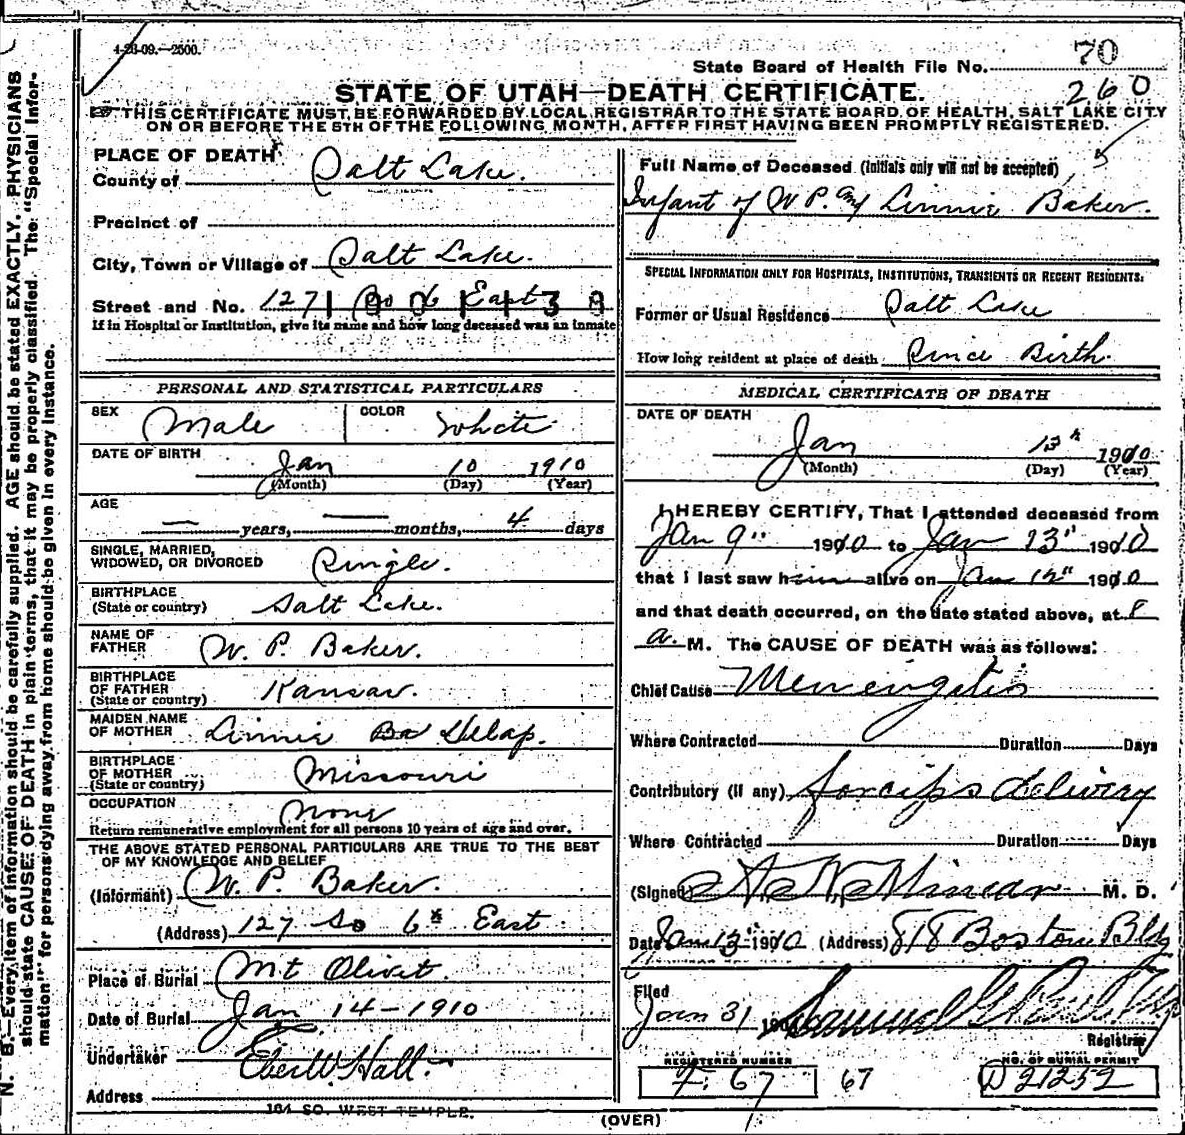 4-26-09.—2500.
State Board of Health File No. 70
260
STATE OF UTAH—DEATH CERTIFICATE.
THIS CERTIFICATE MUST BE FORWARDED BY LOCAL REGISTRAR TO THE STATE BOARD OF HEALTH, SALT LAKE CITY
ON OR BEFORE THE 5TH OF THE FOLLOWING MONTH, AFTER FIRST HAVING BEEN PROMPTLY REGISTERED.
N. B.—Every item of information should be carefully supplied. AGE should be stated EXACTLY. PHYSICIANS
should state CAUSE OF DEATH in plain terms, that it may be properly classified. The "Special Infor-
mation" for persons dying away from home should be given in every instance.
PLACE OF DEATH
County of Salt Lake.
Precinct of
City, Town or Village of Salt Lake.
Street and No. 127 So 6 East
If in Hospital or Institution, give its name and how long deceased was an inmate
PERSONAL AND STATISTICAL PARTICULARS
SEX Male COLOR White
DATE OF BIRTH Jan 10 1910
(Month) (Day) (Year)
AGE
— years, — months, 4 days
SINGLE, MARRIED,
WIDOWED, OR DIVORCED Single.
BIRTHPLACE
(State or country) Salt Lake.
NAME OF
FATHER W. P. Baker.
BIRTHPLACE
OF FATHER
(State or country) Kansas.
MAIDEN NAME
OF MOTHER Linnie Delap.
BIRTHPLACE
OF MOTHER
(State or country) Missouri
OCCUPATION None
Return remunerative employment for all persons 10 years of age and over.
THE ABOVE STATED PERSONAL PARTICULARS ARE TRUE TO THE BEST
OF MY KNOWLEDGE AND BELIEF
(Informant) W. P. Baker.
(Address) 127 So 6th East
Place of Burial Mt Olivet.
Date of Burial Jan 14-1910
Undertaker Eber W. Hall.
Address
164 SO. WEST TEMPLE.
Full Name of Deceased (Initials only will not be accepted)
Infant of W P. and Linnie Baker.
SPECIAL INFORMATION ONLY FOR HOSPITALS, INSTITUTIONS, TRANSIENTS OR RECENT RESIDENTS.
Former or Usual Residence Salt Lake
How long resident at place of death Since Birth.
MEDICAL CERTIFICATE OF DEATH
DATE OF DEATH
Jan 13th 1910
(Month) (Day) (Year)
I HEREBY CERTIFY, That I attended deceased from
Jan 9" 1910 to Jan 13" 1910
that I last saw him alive on Jan 12" 1910
and that death occurred, on the date stated above, at 8
a. M. The CAUSE OF DEATH was as follows:
Chief Cause Meningitis
Where Contracted Duration Days
Contributory (if any) forcips delivery
Where Contracted Duration Days
(Signed) M. D.
Date Jan 13" 1910 (Address) 818 Boston Bldg
Filed
Jan 31 190 Samuel G. Paul
Registrar
REGISTERED NUMBER
F. 67
67
NO. OF BURIAL PERMIT
D 21252
(OVER)